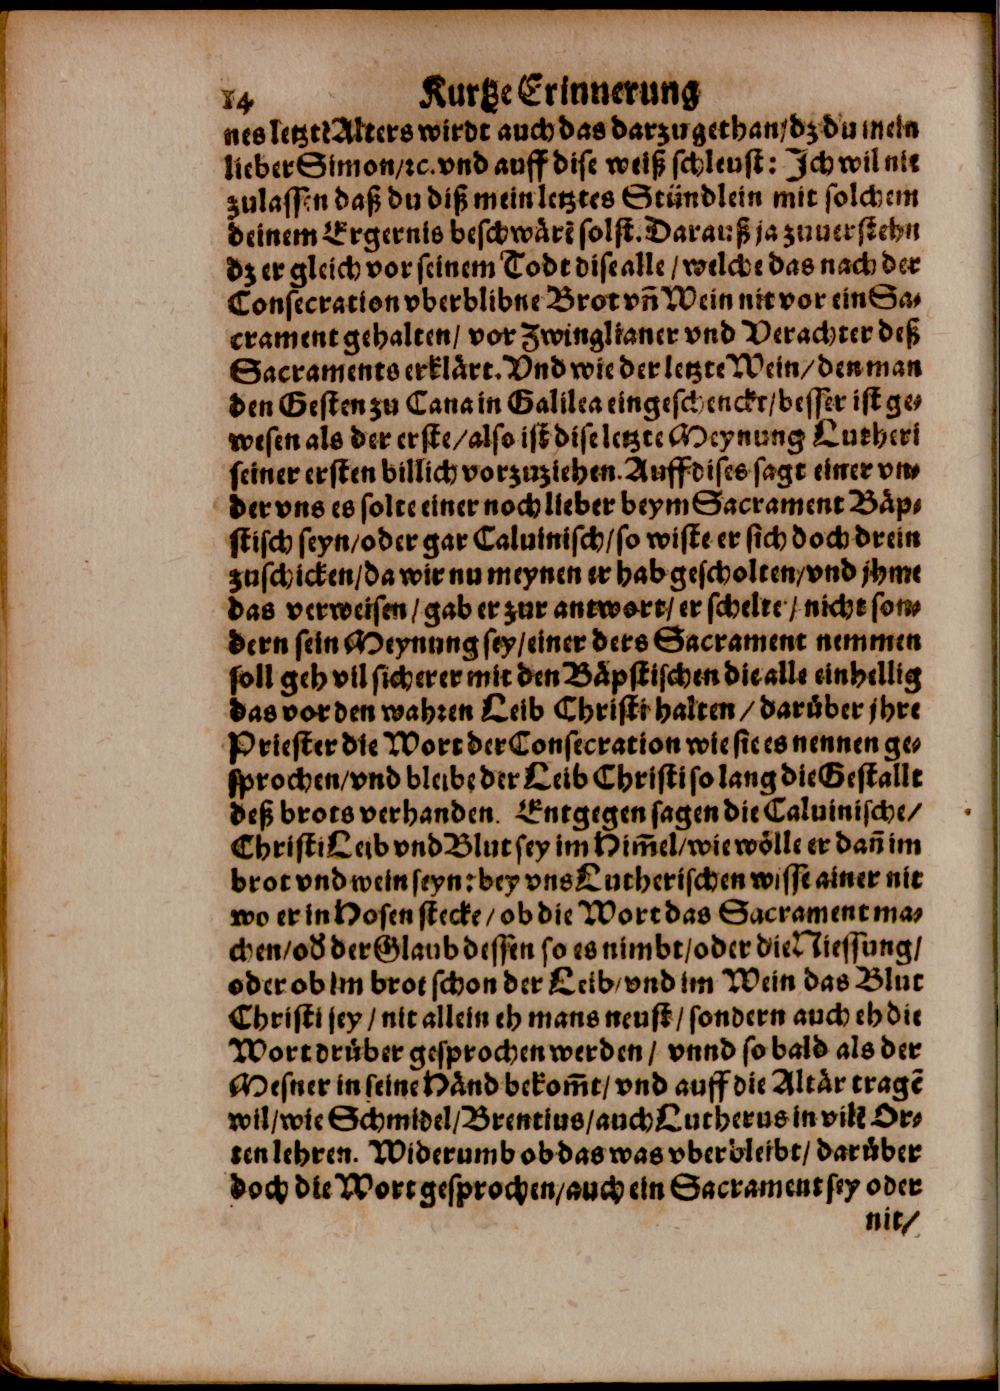 14 Kurtze Erinnerung
nes letztē Alters wirdt auch das darzu gethan/dz du mein
lieber Simon/ꝛc. vnd auff dise weiß schleust: Ich wil nit
zulassen daß du diß mein letztes Stündlein mit solchem
deinem Ergernis beschwärē solst. Darauß ja zuuerstehn
dz er gleich vor seinem Todt dise alle / welche das nach der
Consecration vberblibne Brot vñ Wein nit vor ein Sa-
crament gehalten/ vor Zwinglianer vnd Verachter deß
Sacraments erklärt. Vnd wie der letzte Wein/den man
den Gesten zu Cana in Galilea eingeschenckt/besser ist ge-
wesen als der erste/also ist dise letzte Meynung Lutheri
seiner ersten billich vorzuziehen. Auff dises sagt einer vn-
der vns es solte einer noch lieber beym Sacrament Bäp-
stisch seyn/oder gar Caluinisch/so wiste er sich doch drein
zuschicken/da wir nu meynen er hab gescholten/vnd jhme
das verweisen/gab er zur antwort/er schelte/nicht son-
dern sein Meynung sey/einer ders Sacrament nemmen
soll geh vil sicherer mit den Bäpstischen die alle einhellig
das vor den wahren Leib Christi halten/darüber jhre
Priester die Wort der Consecration wie sie es nennen ge-
sprochen/vnd bleibe der Leib Christi so lang die Gestallt
deß brots verhanden. Entgegen sagen die Caluinische/
Christi Leib vnd Blut sey im Him̃el/wie wölle er dañ im
brot vnd wein seyn: bey vns Lutherischen wisse ainer nit
wo er in Hosen stecke/ob die Wort das Sacrament ma-
chen/od̃ der Glaub dessen so es nimbt/oder die Niessung/
oder ob im brot schon der Leib/vnd im Wein das Blut
Christi sey / nit allein eh mans neust/ sondern auch eh die
Wort drüber gesprochen werden/ vnnd so bald als der
Mesner in seine Händ bekom̃t/ vnd auff die Altär tragē
wil/wie Schmidel/Brentius/auch Lutherus in vilē Or-
ten lehren. Widerumb ob das was vberbleibt/ darüber
doch die Wort gesprochen/auch ein Sacrament sey oder
nit/